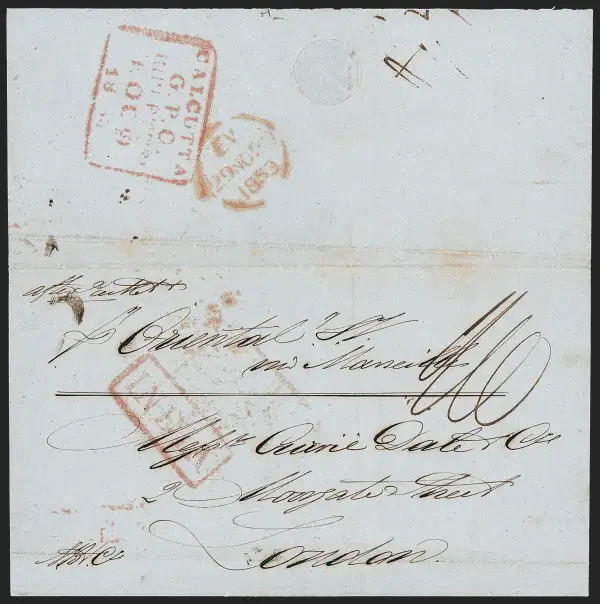 CALCUTTA
G. P. O.
OC 9
EV
29 NO
1853
after Packet
pr "Oriental" Str
via Marseilles
Messrs Currie Dale & Co
2 Moorgate Street
London.